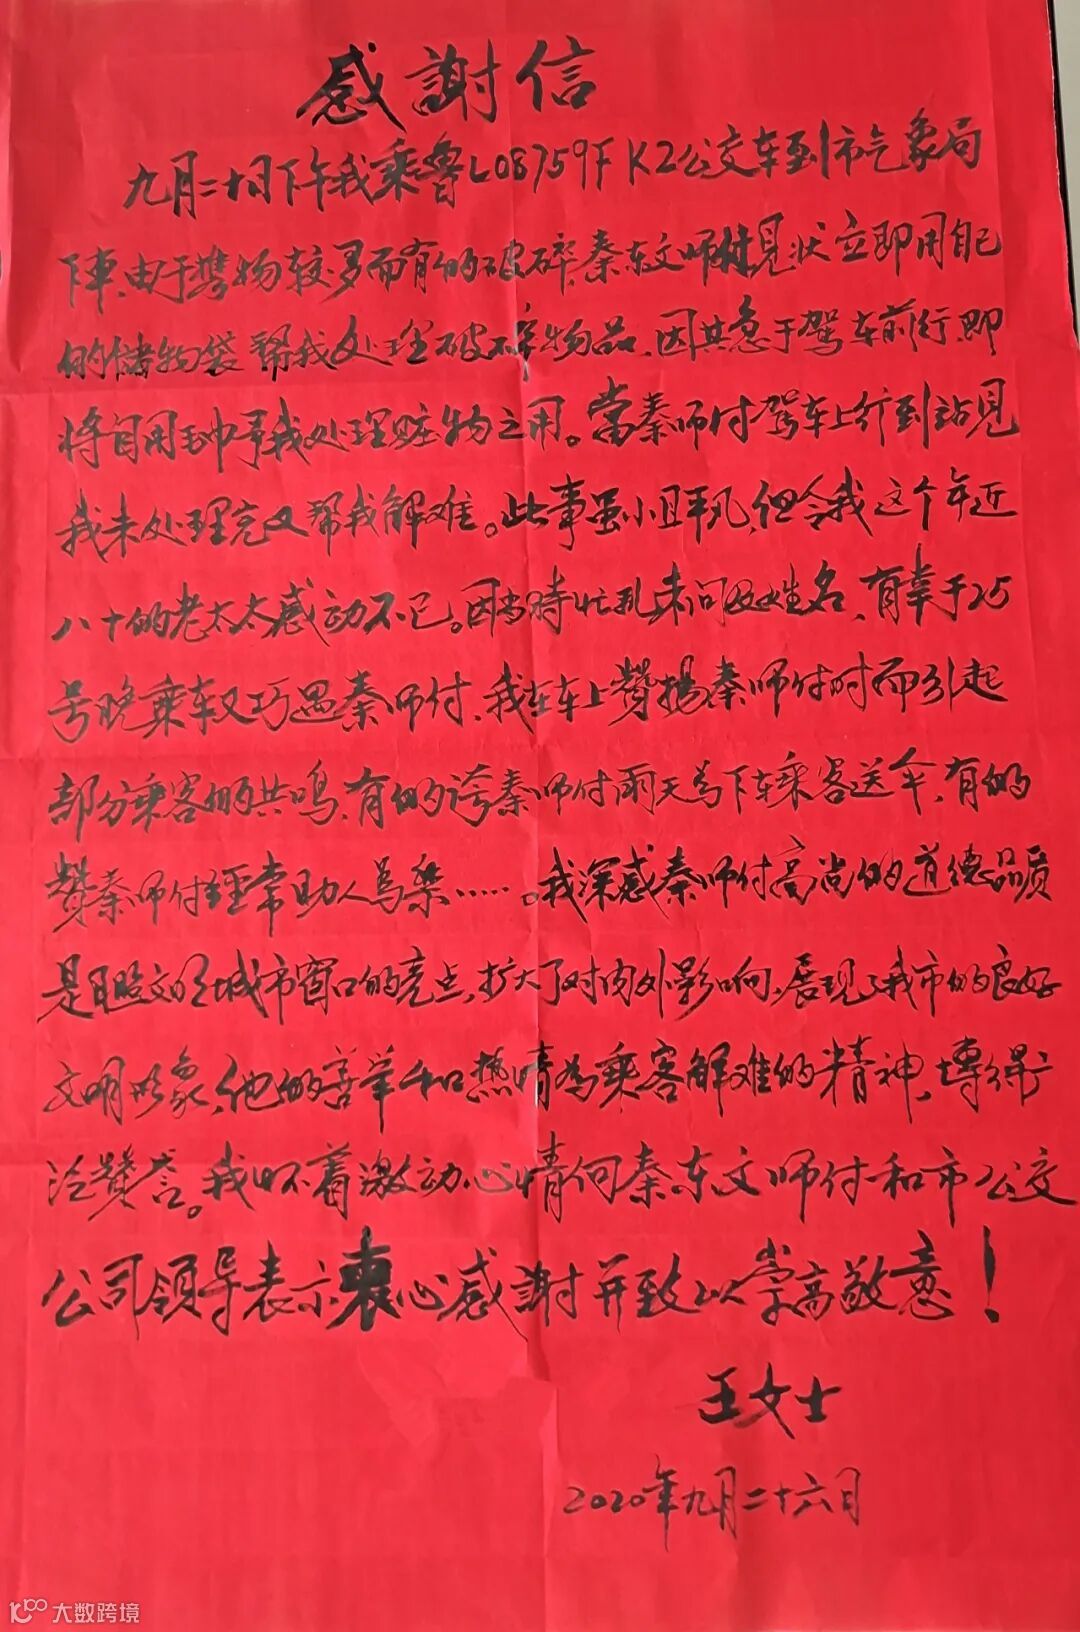 感謝信
九月二十日下午我乘鲁L08759F K2公交车到市气象局
下車,由于携物较多而有的破碎,秦东文师付見状立即用自己
的储物袋帮我处理破碎物品,因其急于驾车前行,即
将自用毛巾予我处理赃物之用。當秦师付驾车上行到站見
我未处理完又帮我解难。此事虽小且平凡,但令我这个年近
八十的老太太感动不已。因当時忙乱未问及姓名,有幸于25
号晚乘车又巧遇秦师付,我在车上赞揚秦师付时而引起
部分乘客的共鸣,有的夸秦师付雨天为下车乘客送伞,有的
赞秦师付经常助人為樂……。我深感秦师付高尚的道德品质
是日照文明城市窗口的亮点,扩大了对内外影响,展现了我市的良好
文明形象,他的善举和热情为乘客解难的精神,博得广
泛赞誉。我怀着激动心情向秦东文师付和市公交
公司领导表示衷心感謝并致以崇高敬意!
王女士
2020年九月二十六日
大数跨境